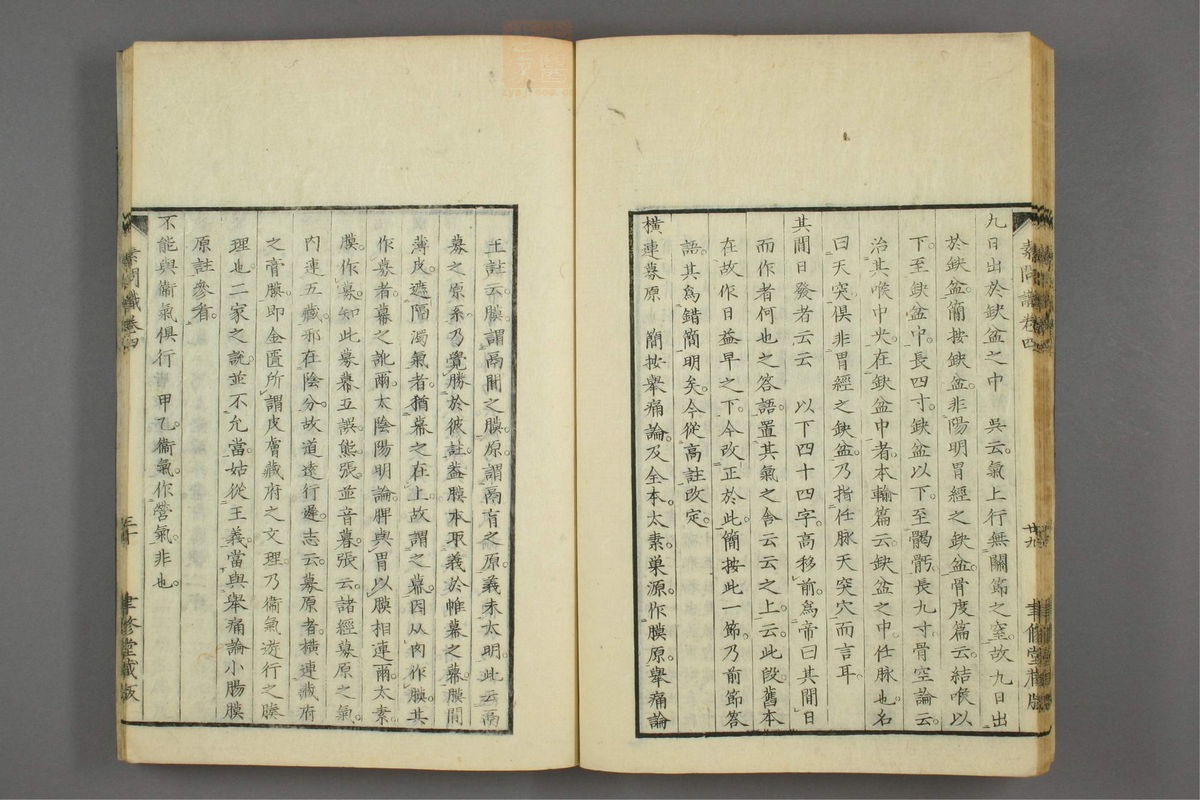 九日出於缺盆之中　吳云氣上行無關節之窒故九日出
於缺盆簡按缺盆非陽明胃經之缺盆骨度篇云結喉以
下至缺盆中長四寸缺盆以下至𩩲骬長九寸骨空論云
治其喉中央在缺盆中者本輸篇云缺盆之中任脉也名
曰天突俱非胃經之缺盆乃指任脉天突穴而言耳
其間日發者云云　以下四十四字高移前爲帝曰其間日
而作者何也之答語置其氣之舍云云之上云此段舊本
在故作日益早之下今改正於此簡按此一節乃前節答
語其爲錯簡明矣今從高註改定
橫連募原　簡按舉痛論及全本太素巢源作膜原舉痛論
素問識卷四
廿九
聿修堂藏版
王註云膜謂鬲間之膜原謂鬲肓之原義未太明此云鬲
募之原系乃覺勝於彼註蓋膜本取義於帷幕之幕膜間
薄皮遮隔濁氣者猶幕之在上故謂之幕因从肉作膜其
作募者幕之訛爾太陰陽明論脾與胃以膜相連爾太素
膜作募知此募幕互誤熊張並音暮張云諸經募原之氣
內連五藏邪在陰分故道遠行遲志云募原者橫連藏府
之膏膜即金匱所謂皮膚藏府之文理乃衞氣遊行之腠
理也二家之說並不允當姑從王義當與舉痛論小腸膜
原註參看
不能與衞氣俱行　甲乙衞氣作營氣非也
素問識卷四
三十
聿修堂藏版